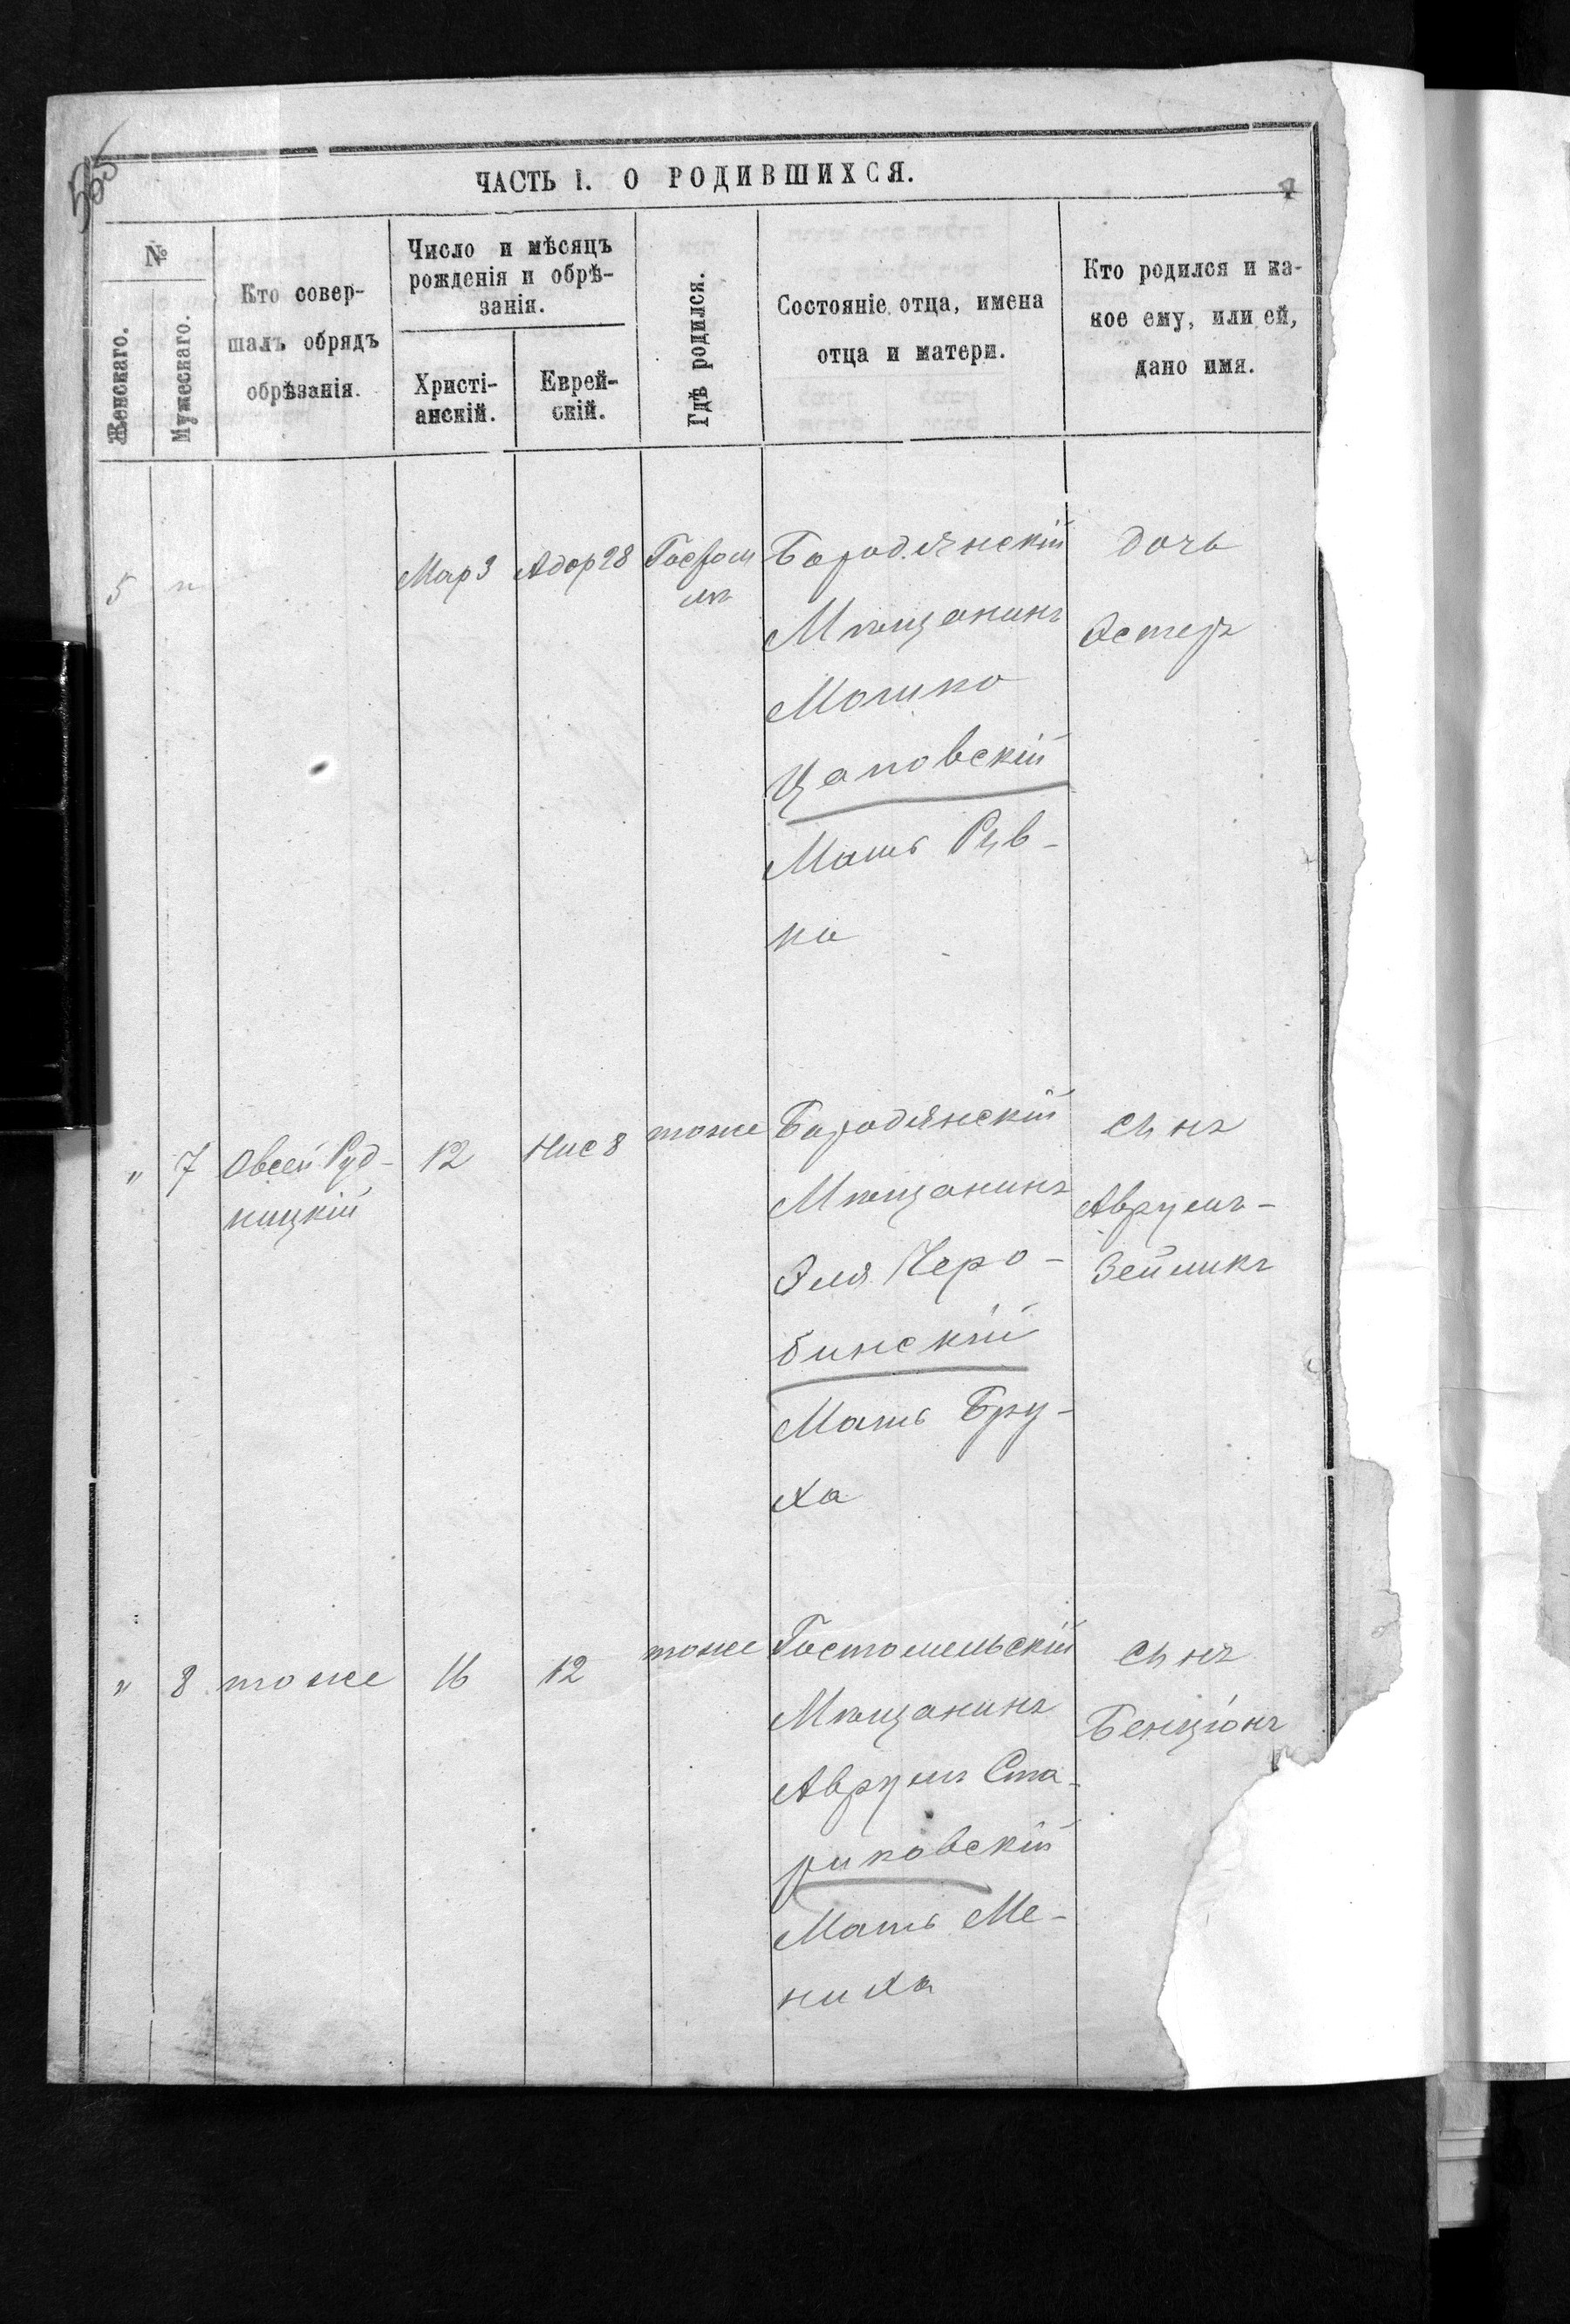 ЧАСТЬ I. О РОДИВШИХСЯ.
№
Женскаго.
Мужескаго.
Кто совер-
шалъ обрядъ
обрѣзанія.
Число и мѣсяцъ
рожденія и обрѣ-
занія.
Христі-
анскій.
Еврей-
скій.
Гдѣ родился.
Состояніе отца, имена
отца и матери.
Кто родился и ка-
кое ему, или ей,
дано имя.
5 " Мар 3 Адор 28
Бородянскій
Мѣщанинъ
Мошко
Цаповскій
Мать Рыв-
ка
дочь
Эстеръ
" 7 Овсей Руд-
ницкій
12 Нис 8 тоже
Бородянскій
Мѣщанинъ
Эля Черо-
бинскій
Мать Бру-
ха
Сынъ
Аврумъ-
Зейликъ
" 8 тоже 16 12 тоже
Гостомельскій
Мѣщанинъ
Аврумъ Ста-
риковскій
Мать Ме-
ниха
Сынъ
Бенціонъ